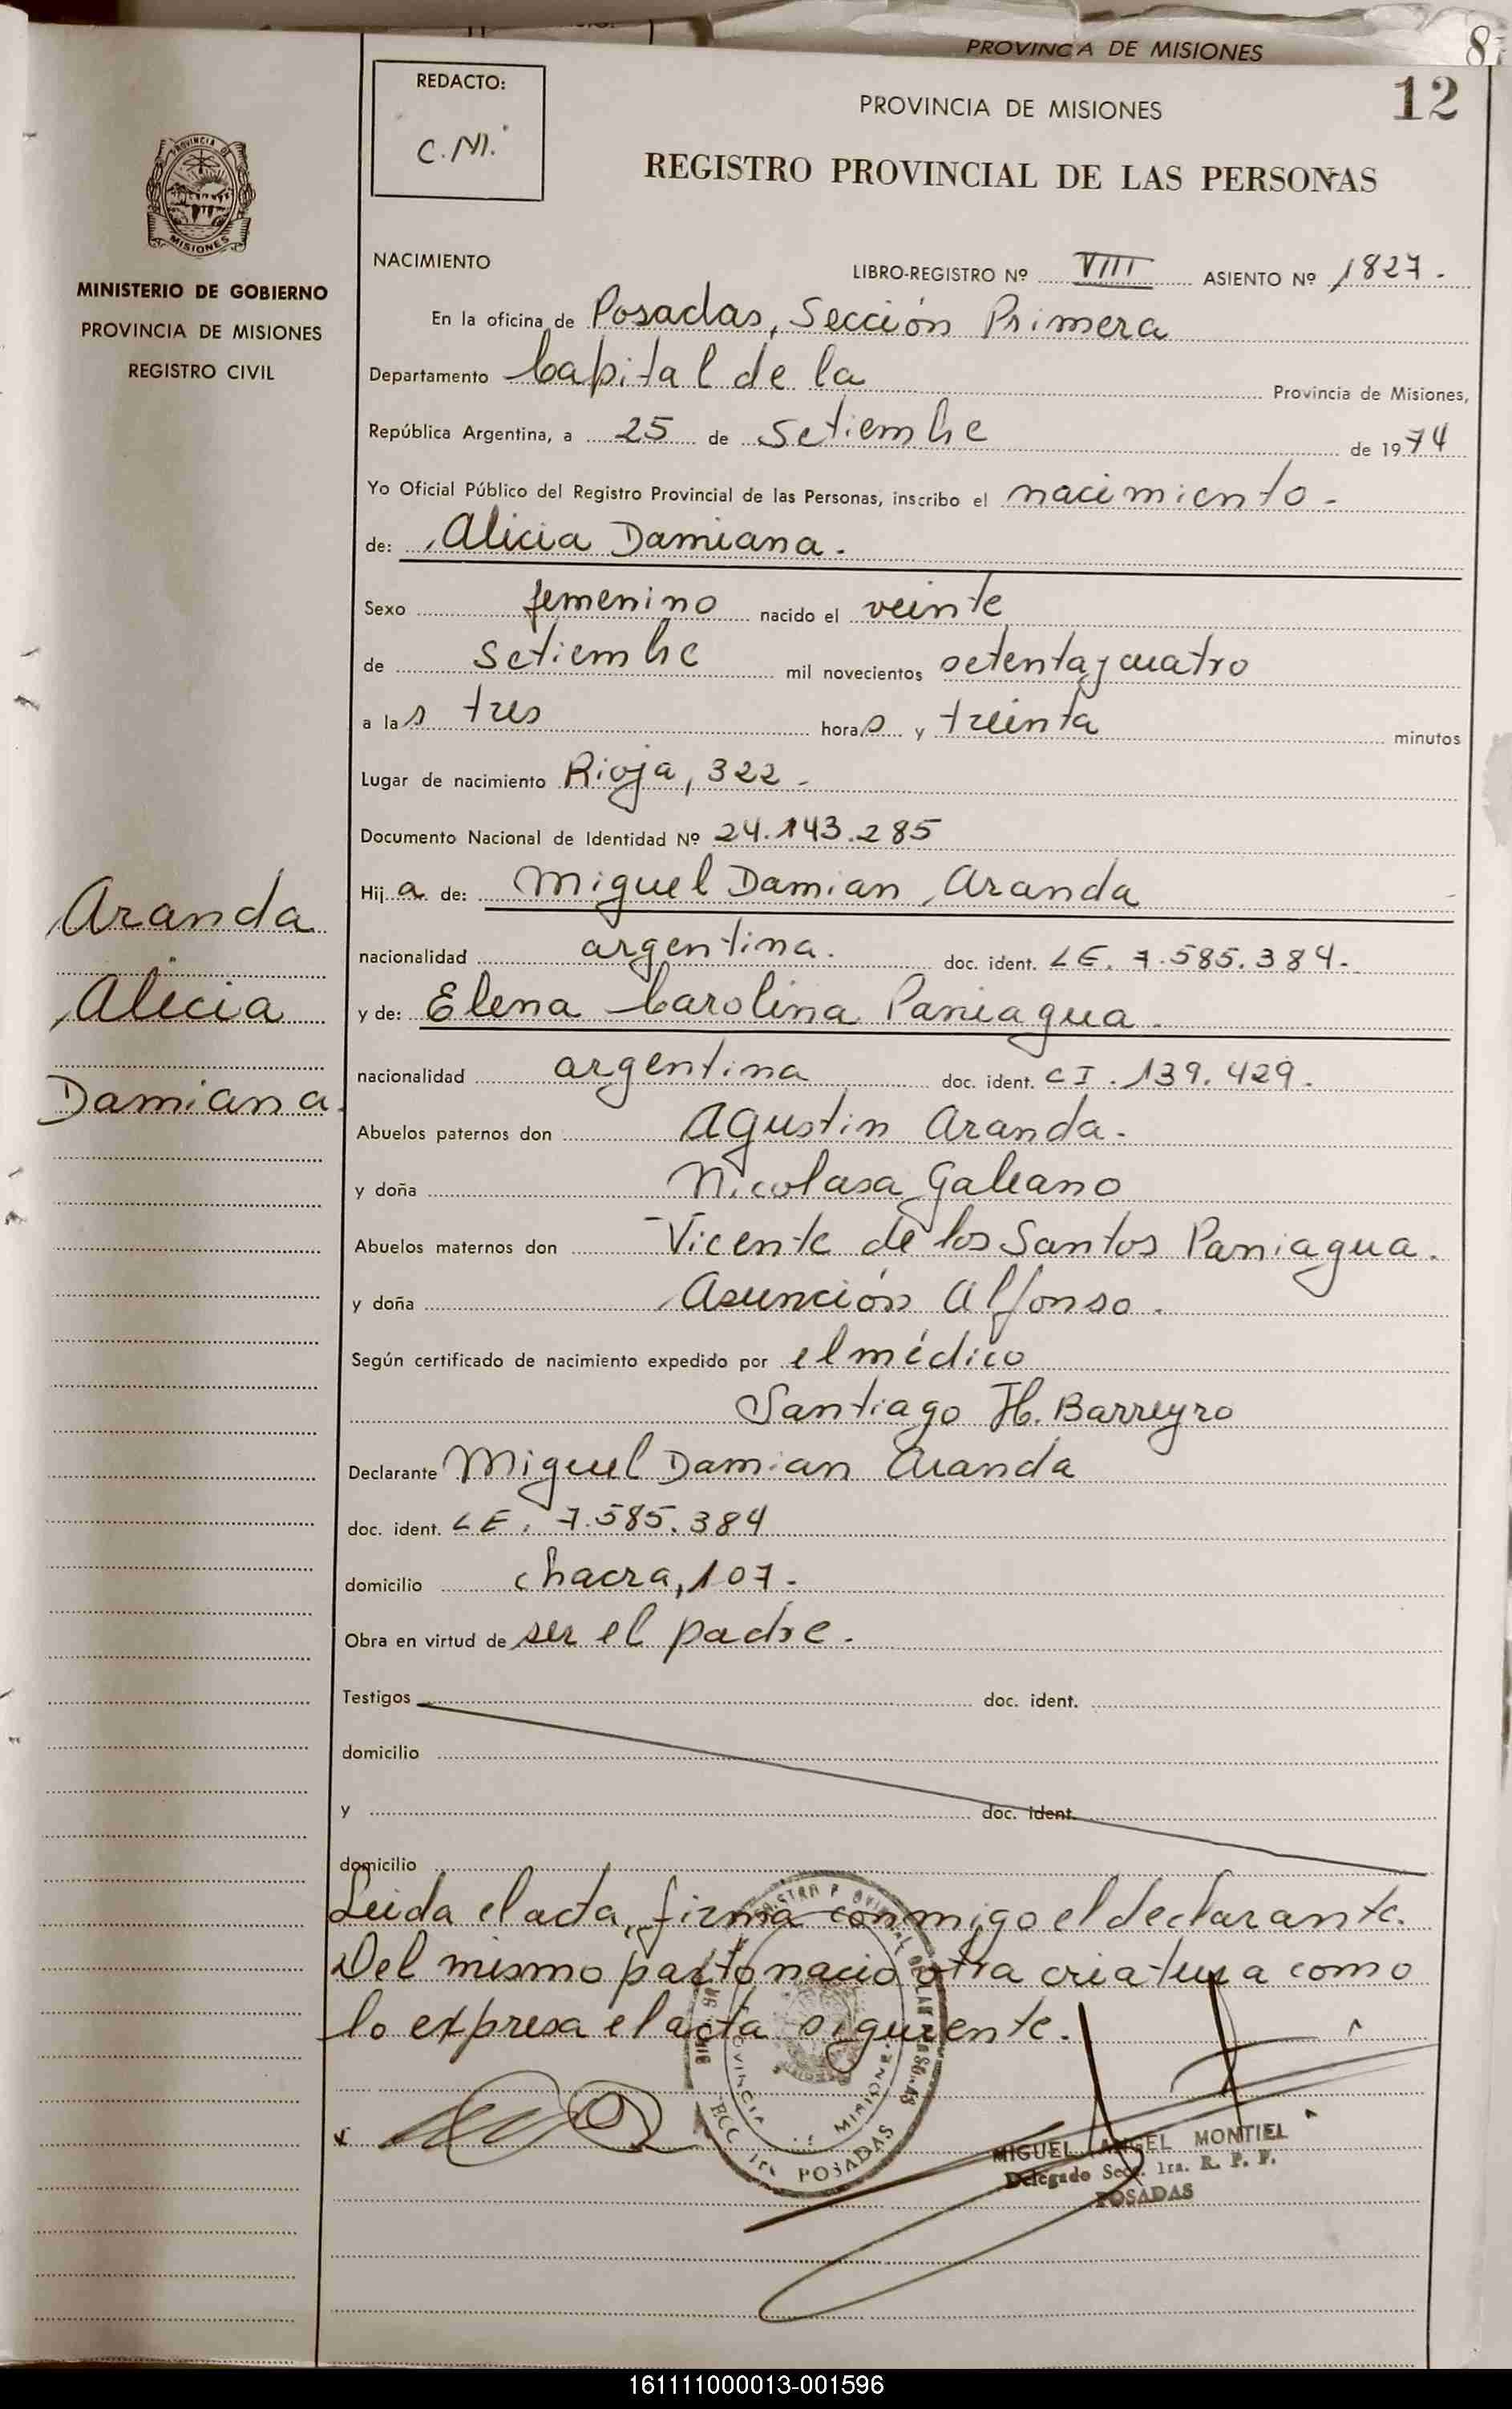 PROVINCIA DE MISIONES
8
REDACTO:
C.M.
12
PROVINCIA DE MISIONES
REGISTRO PROVINCIAL DE LAS PERSONAS
PROVINCIA DE
MISIONES
MINISTERIO DE GOBIERNO
PROVINCIA DE MISIONES
REGISTRO CIVIL
NACIMIENTO
LIBRO-REGISTRO Nº VIII ASIENTO Nº 1827.
En la oficina de Posadas, Sección Primera
Departamento Capital de la Provincia de Misiones,
República Argentina, a 25 de Setiembre de 1974
Yo Oficial Público del Registro Provincial de las Personas, inscribo el nacimiento.
de: Alicia Damiana.
Sexo femenino nacido el veinte
de Setiembre mil novecientos setenta y cuatro
a las tres horas y treinta minutos
Lugar de nacimiento Rioja, 322.
Documento Nacional de Identidad Nº 24.143.285
Hija de: Miguel Damian Aranda
nacionalidad argentina. doc. ident. LE. 7.585.384.
y de: Elena Carolina Paniagua.
nacionalidad argentina doc. ident. CI. 139.429.
Aranda
Alicia
Damiana.
Abuelos paternos don Agustin Aranda.
y doña Nicolasa Galeano
Abuelos maternos don Vicente de los Santos Paniagua.
y doña Asunción Alfonso.
Según certificado de nacimiento expedido por el médico
Santiago H. Barreyro
Declarante Miguel Damian Aranda
doc. ident. LE. 7.585.384
domicilio chacra, 107.
Obra en virtud de ser el padre.
Testigos doc. ident.
domicilio
y doc. ident.
domicilio
Leida el acta, firma conmigo el declarante.
Del mismo parto nacio otra criatura como
lo expresa el acta siguiente.
POSADAS
MIGUEL ANGEL MONTIEL
Delegado Secc. 1ra. R. P. P.
POSADAS
161111000013-001596